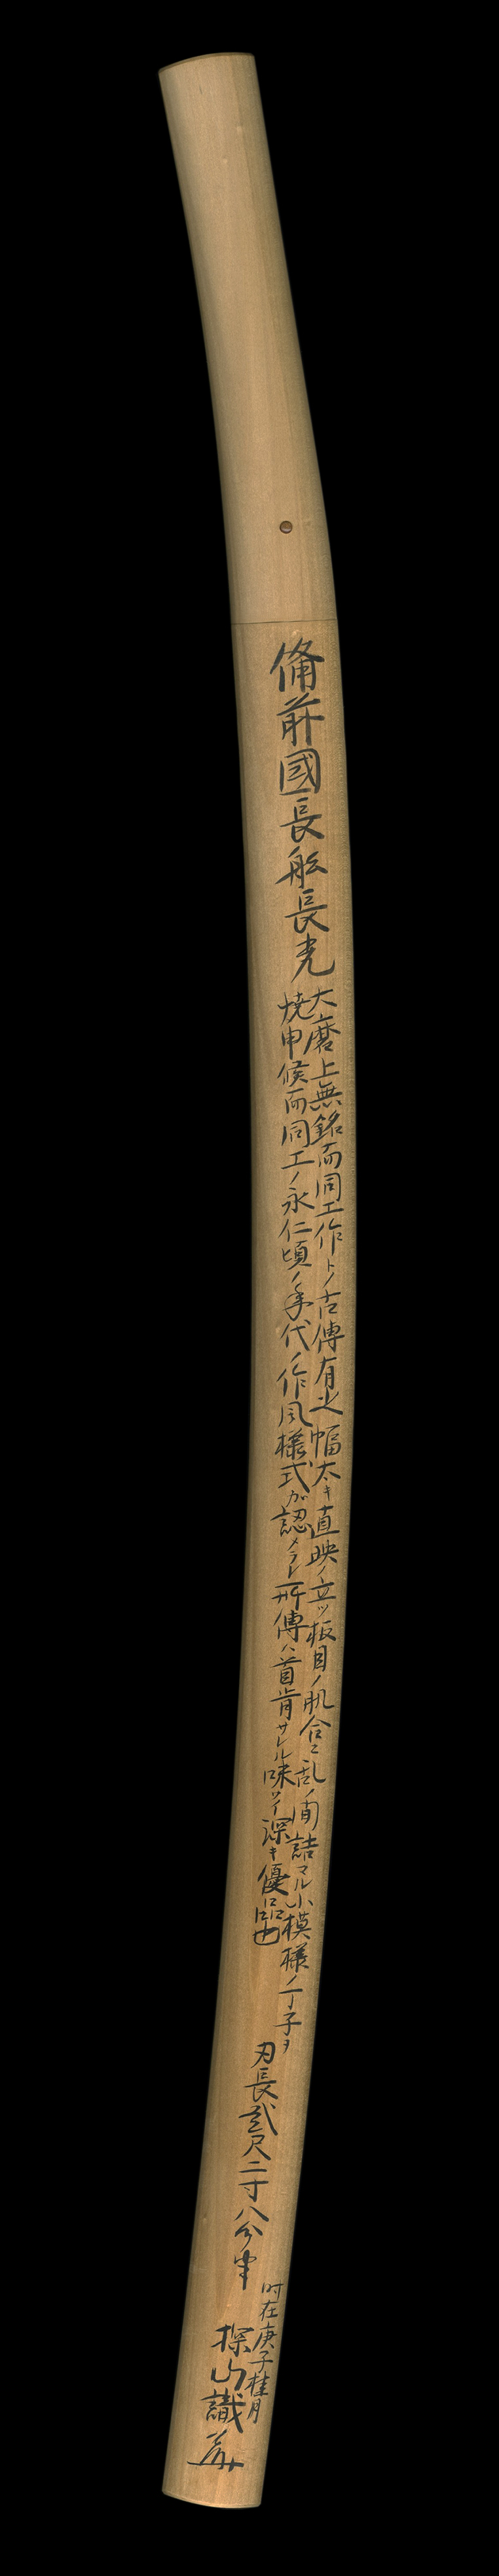 備前國長舩長光
大磨上無銘而同工作ト ノ古傳有之幅太キ直映ノ立ツ板目ノ肌合ニ乱ノ間詰マル小模様ノ丁子ヲ
焼申候而同工ノ永仁頃ノ年代ノ作風様式ガ認メラレ所傳ハ首肯サレル味ワイ深キ優品也
刃長貳尺二寸八分半
时在庚子桂月
探山識